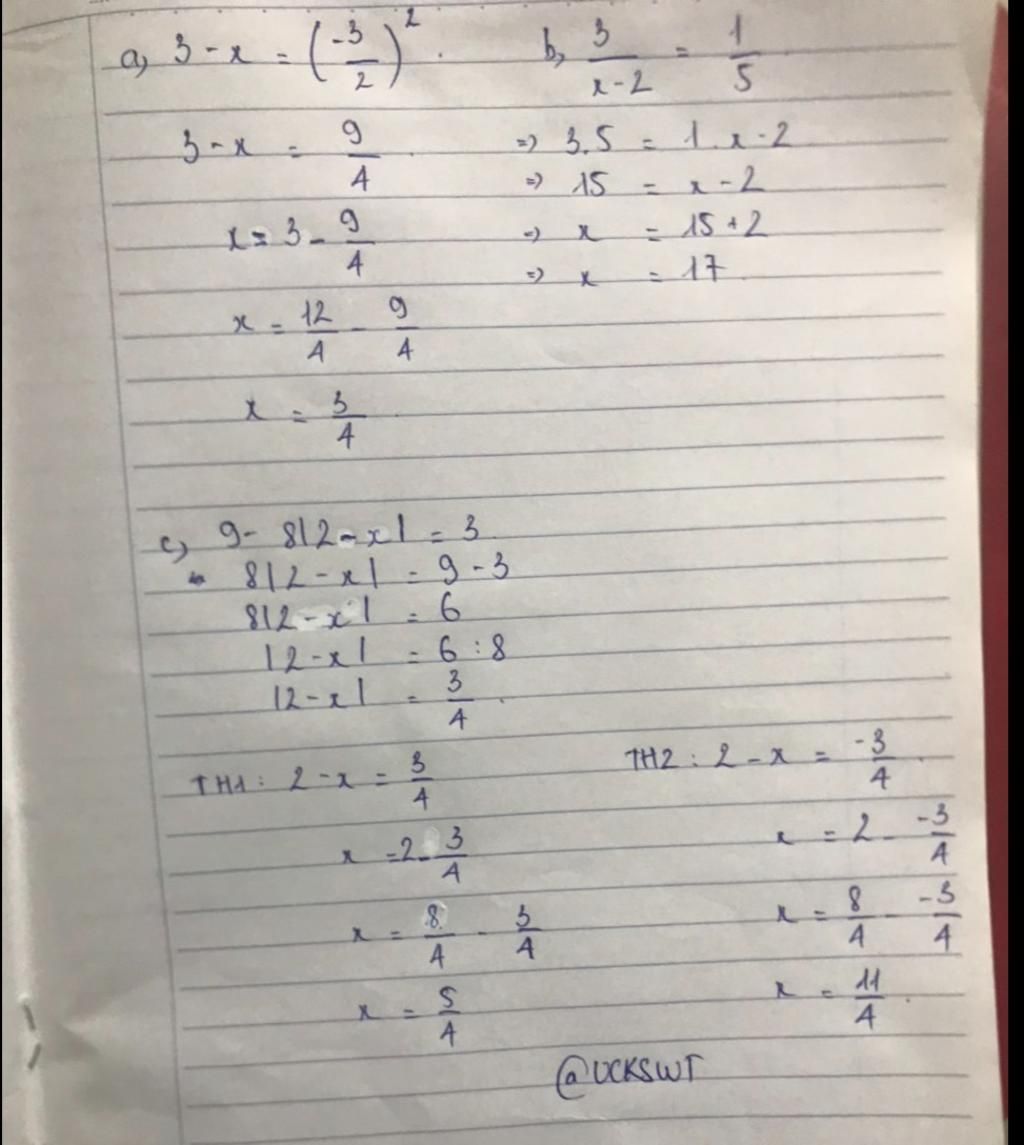 a, 3 - x = (-3/2)² .
3 - x = 9/4 .
x = 3 - 9/4
x = 12/4 - 9/4
x = 3/4 .
b, 3/(x-2) = 1/5
=> 3.5 = 1.x-2
=> 15 = x-2
=> x = 15+2
=> x = 17
c, 9 - 8|2-x| = 3
8|2-x| = 9-3
8|2-x| = 6
|2-x| = 6:8
|2-x| = 3/4 .
TH1: 2-x = 3/4
x = 2 - 3/4
x = 8/4 - 3/4
x = 5/4
TH2: 2-x = -3/4 .
x = 2 - -3/4
x = 8/4 - -3/4
x = 11/4 .
@UCKSWT